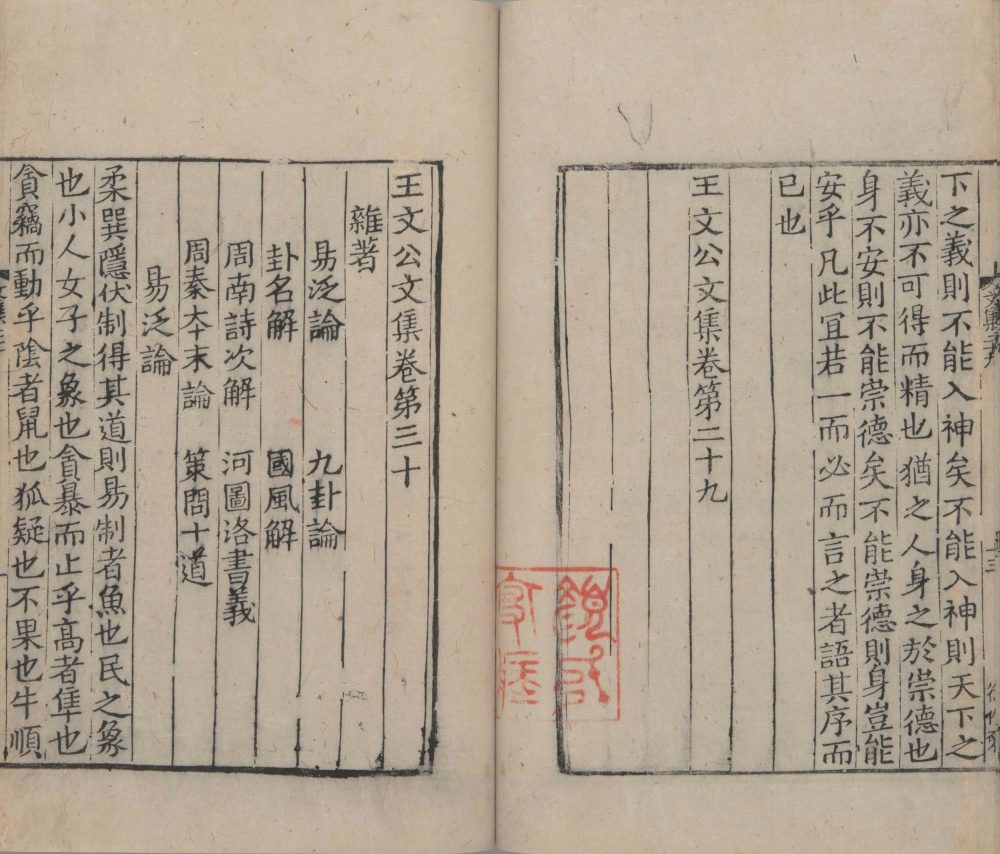 下之義則不能入神矣不能入神則天下之
義亦不可得而精也猶之人身之於崇德也
身不安則不能崇德矣不能崇德則身豈能
安乎凡此冝若一而必而言之者語其序而
已也
王文公文集卷第二十九
王文公文集卷第三十
雜著
易泛論 九卦論
卦名解 國風解
周南詩次解 河圖洛書義
周秦本末論 策問十道
易泛論
柔巽隱伏制得其道則易制者魚也民之象
也小人女子之象也貪暴而止乎高者隼也
貪竊而動乎陰者鼠也狐疑也不果也牛順